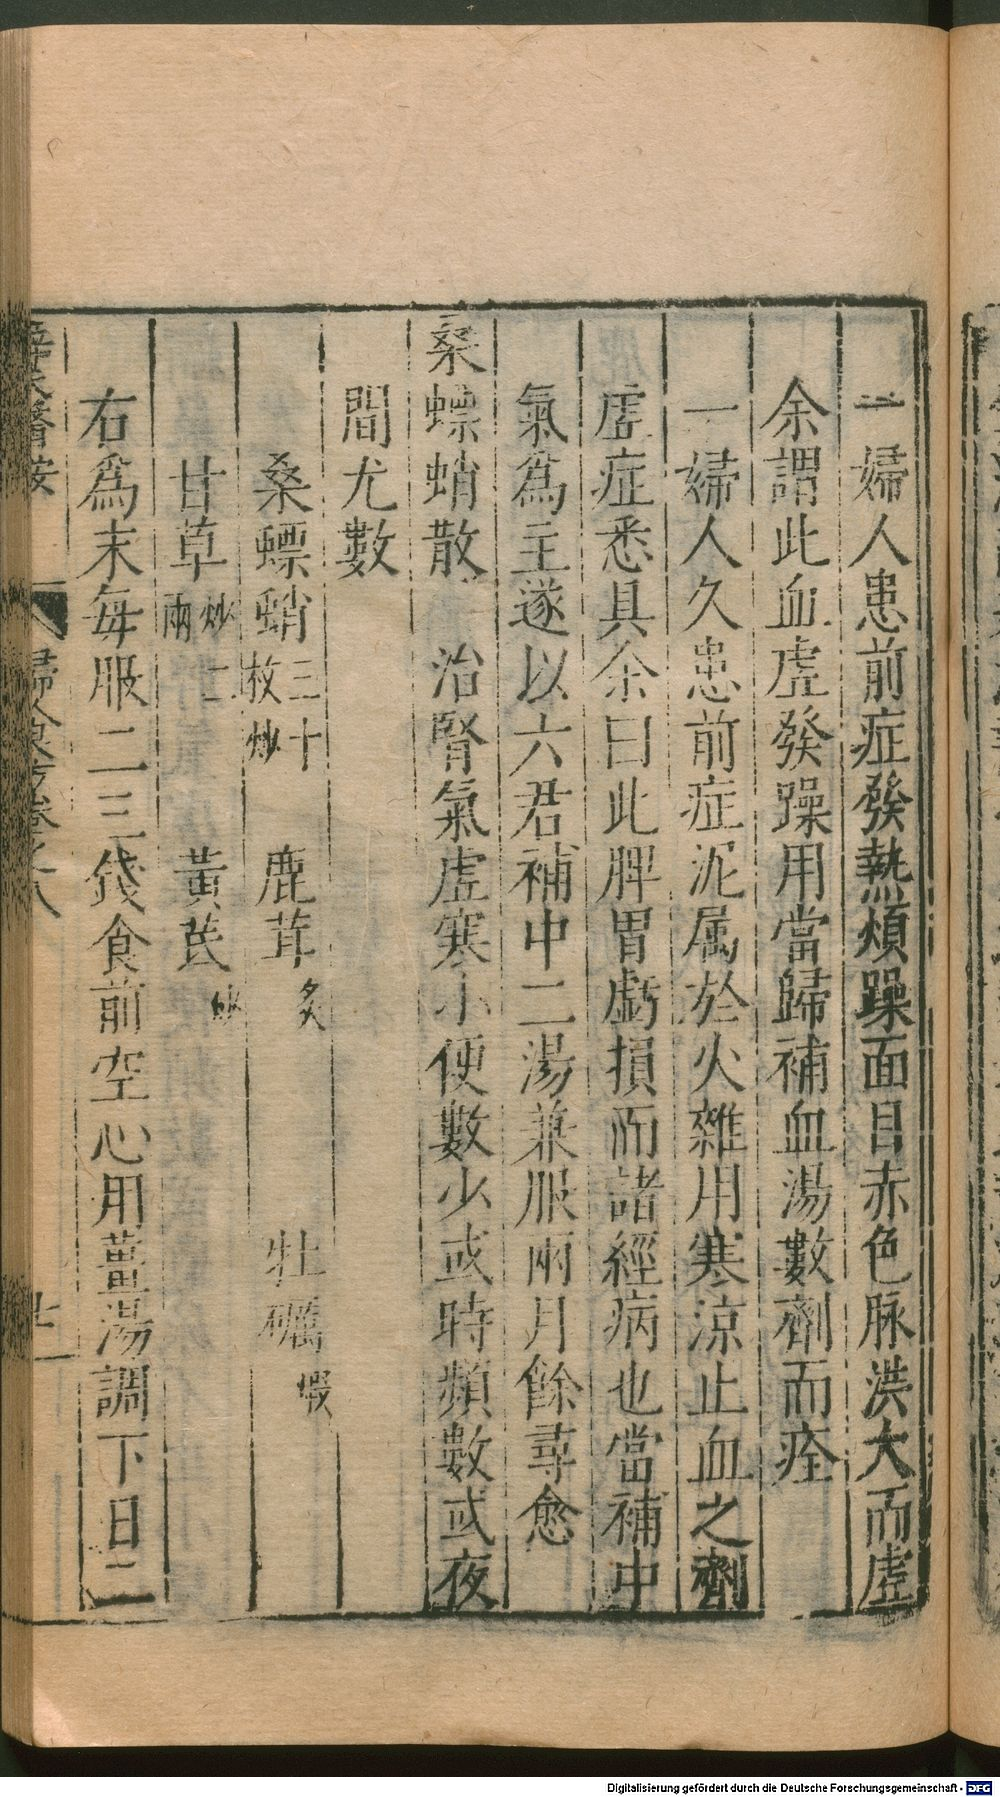 一婦人患前症發熱煩躁面目赤色脉洪大而虛
余謂此血虛發躁用當歸補血湯數劑而痊
一婦人久患前症泥属於火雜用寒涼止血之劑
虛症悉具余曰此脾胃虧損而諸經病也當補中
氣爲主遂以六君補中二湯兼服兩月餘尋愈
桑螵蛸散 治腎氣虛寒小便數少或時頻數或夜
間尤數
桑螵蛸三十枚炒 鹿茸炙 牡礪煆
甘草炒二兩 黃芪炒
右爲末每服二三錢食前空心用薑湯調下日二
薛氏醫按 婦人良方卷之八 十一
Digitalisierung gefördert durch die Deutsche Forschungsgemeinschaft - DFG